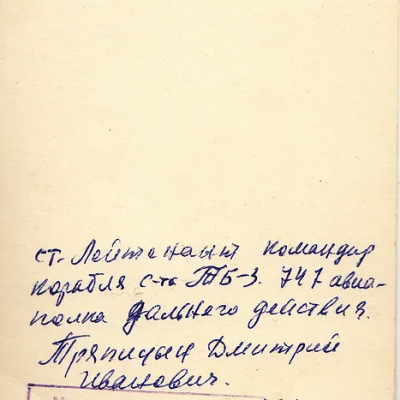 ст. Лейтенант командир
корабля с-та ТБ-3. 747 авиа-
полка дальнего действия.
Тряпицын Дмитрий
Иванович.